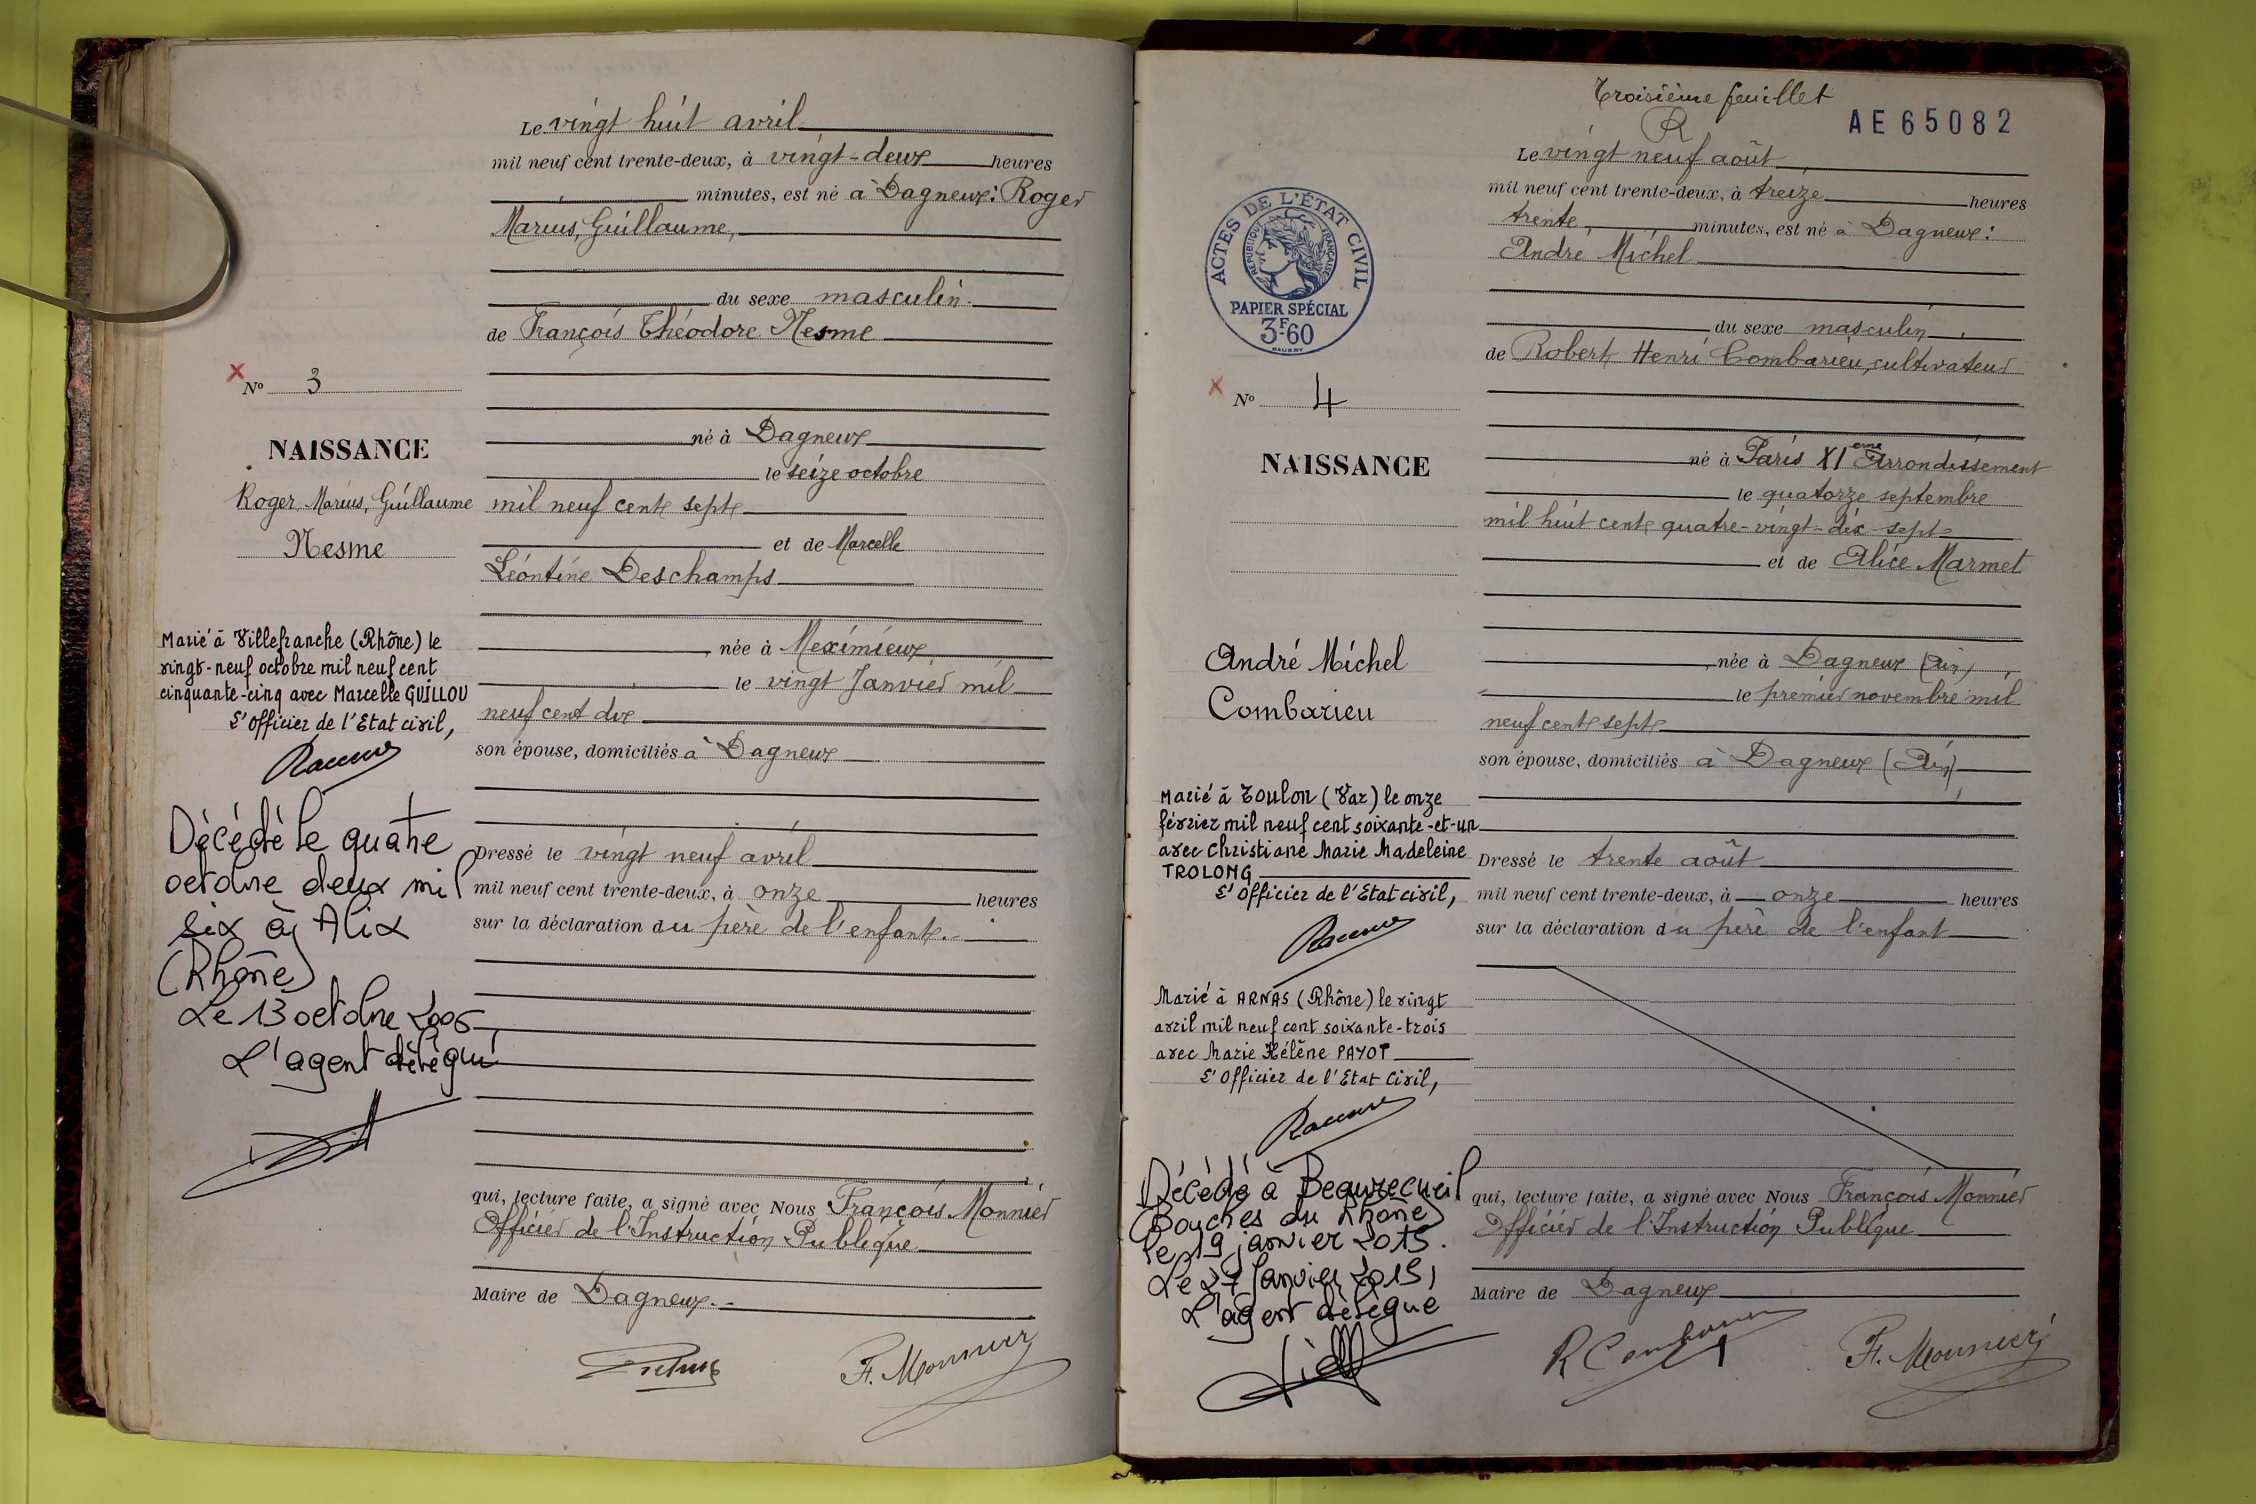 Le vingt huit avril
mil neuf cent trente-deux, à vingt-deux heures
minutes, est né à Dagneux: Roger
Marius, Guillaume,
du sexe masculin.
de François Théodore Nesme
N° 3
né à Dagneux
NAISSANCE
le seize octobre
Roger, Marius, Guillaume
mil neuf cent sept
Nesme
et de Marcelle
Léontine Deschamps
née à Meximieux
le vingt Janvier mil
neuf cent dix
son épouse, domiciliés à Dagneux
Marié à Villefranche (Rhône) le
vingt-neuf octobre mil neuf cent
cinquante-cinq avec Marcelle GUILLOU
L'Officier de l'Etat civil,
Décédé le quatre
octobre deux mil
six à Alix
(Rhône)
Le 13 octobre 2006,
L'agent délégué
Dressé le vingt neuf avril
mil neuf cent trente-deux, à onze heures
sur la déclaration du père de l'enfant.
qui, lecture faite, a signé avec Nous François Monnier
Officier de l'Instruction Publique
Maire de Dagneux.
F. Monnier
Troisième feuillet
R
AE65082
Le vingt neuf août
mil neuf cent trente-deux, à treize heures
trente, minutes, est né à Dagneux:
André Michel
ACTES DE L'ÉTAT CIVIL
RÉPUBLIQUE FRANÇAISE
PAPIER SPÉCIAL
3F-60
du sexe masculin,
de Robert Henri Combarieu, cultivateur
N° 4
né à Paris XIeme Arrondissement
NAISSANCE
le quatorze septembre
mil huit cent quatre-vingt-dix-sept
et de Alice Marmet
André Michel
Combarieu
née à Dagneux (Ain)
le premier novembre mil
neuf cent sept
son épouse, domiciliés à Dagneux (Ain)
Marié à Toulon (Var) le onze
février mil neuf cent soixante-et-un
avec Christiane Marie Madeleine
TROLONG
L'Officier de l'Etat civil,
Marié à ARNAS (Rhône) le vingt
avril mil neuf cent soixante-trois
avec Marie Hélène PAYOT
L'Officier de l'Etat Civil,
Décédé à Beaurecueil
(Bouches du Rhône)
le 19 janvier 2015.
Le 27 Janvier 2015,
L'agent délégué
Dressé le trente août
mil neuf cent trente-deux, à onze heures
sur la déclaration du père de l'enfant
qui, lecture faite, a signé avec Nous François Monnier
Officier de l'Instruction Publique
Maire de Dagneux
R Combarieu
F. Monnier